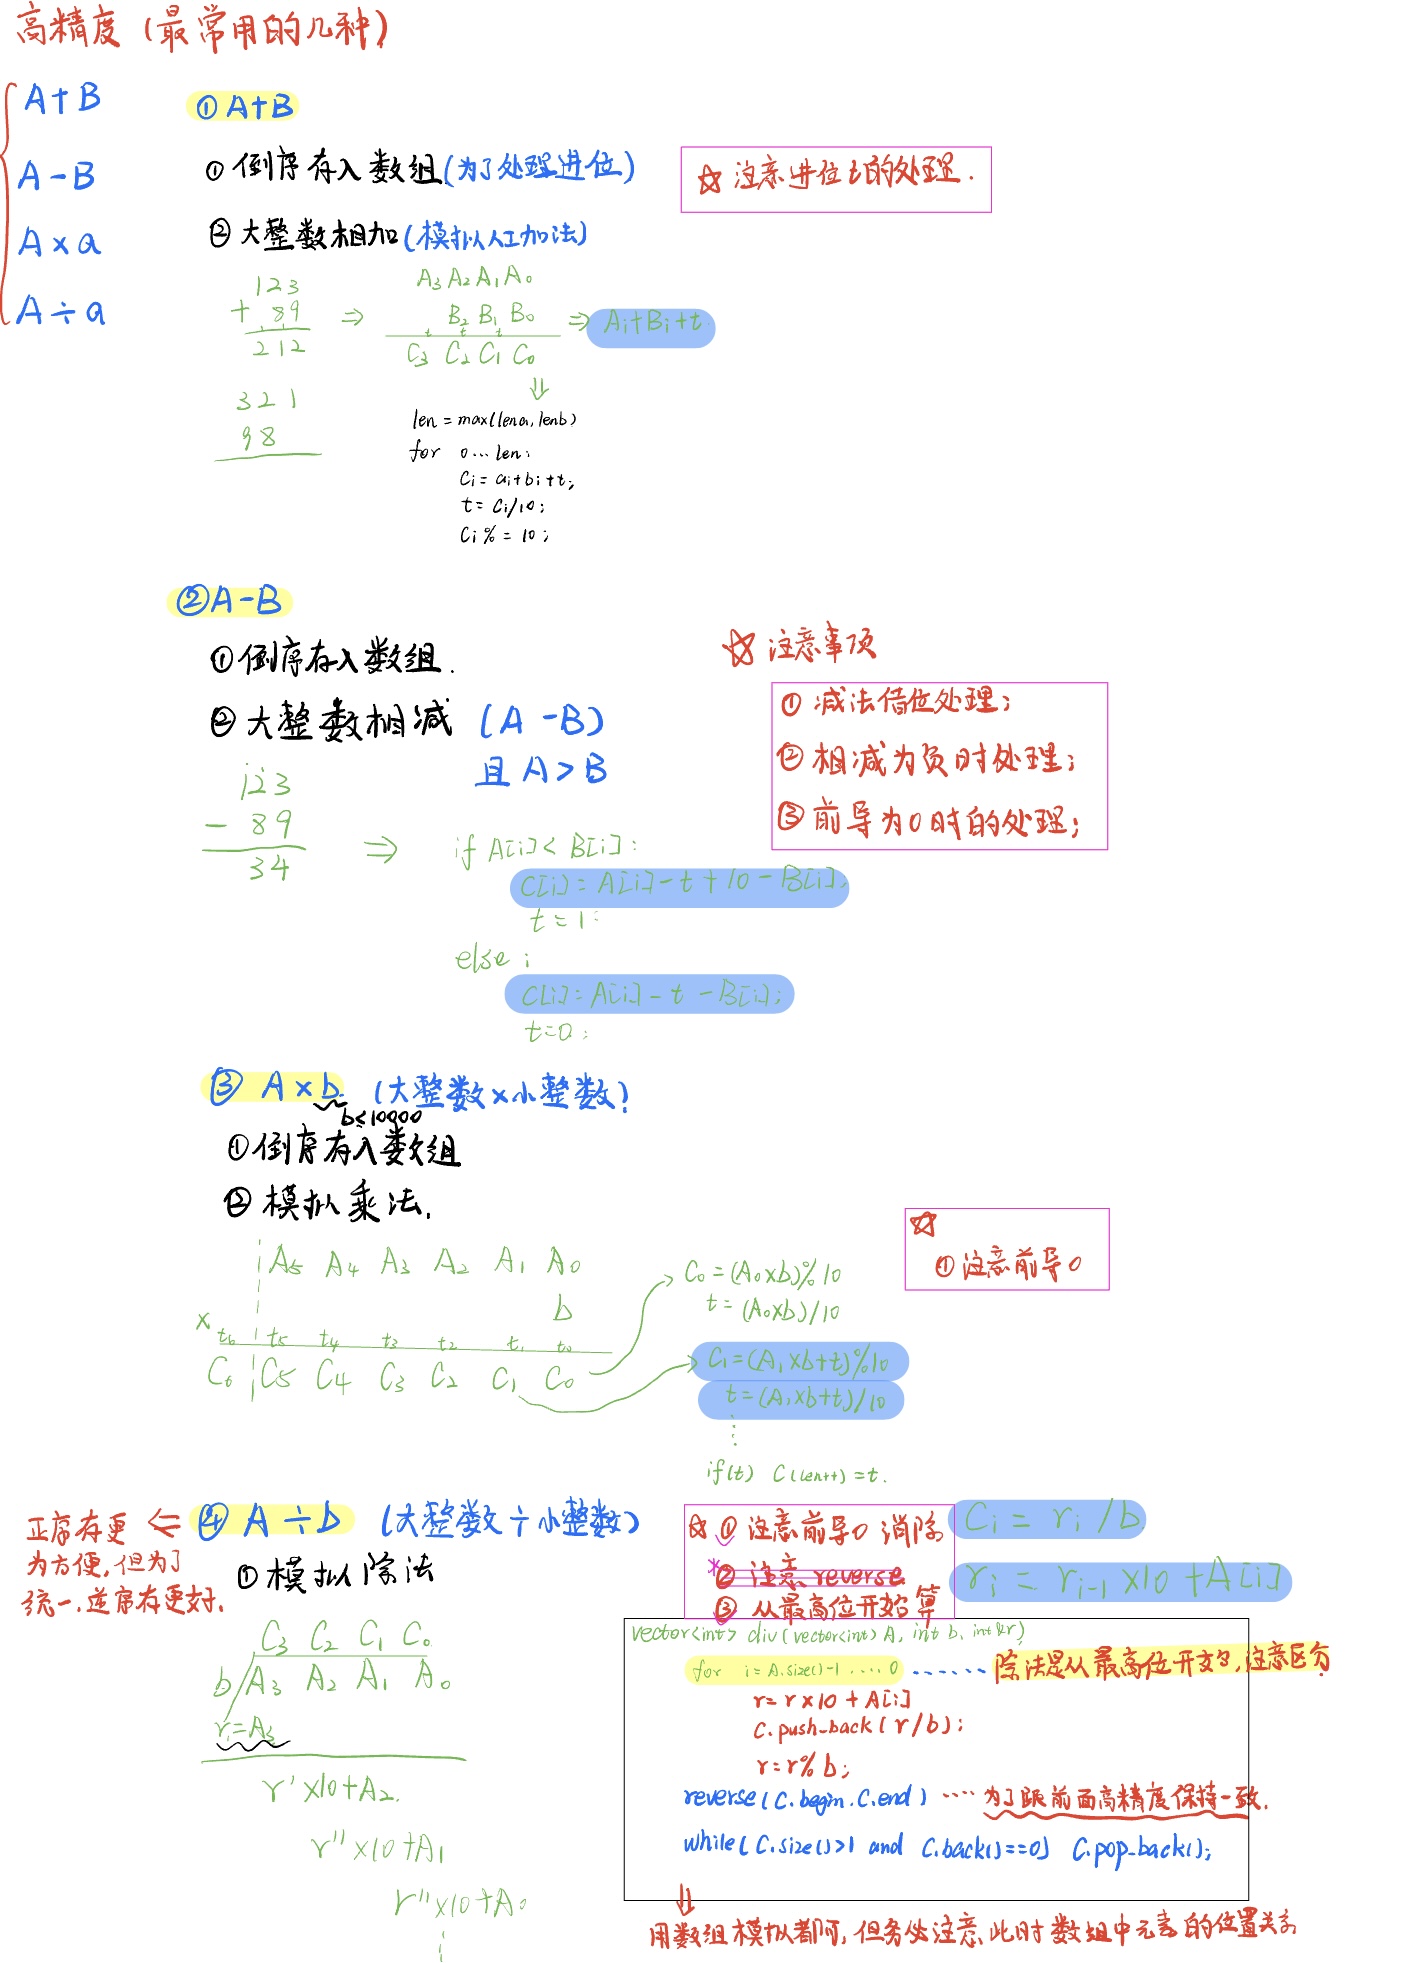 高精度（最常用的几种）
A+B
A-B
A×a
A÷a
① A+B
① 倒序存入数组(为了处理进位)
☆ 注意进位t的处理.
② 大整数相加(模拟人工加法)
123
+ 89
212
321
98
⇒
A3 A2 A1 A0
B2 B1 B0
t t t
C3 C2 C1 C0
⇒ Ai+Bi+t
⇓
len = max(lena, lenb)
for 0...len:
Ci = ai+bi+t;
t = Ci/10;
Ci % = 10;
②A-B
①倒序存入数组.
② 大整数相减 (A-B)
且 A>B
☆ 注意事项
① 减法借位处理;
② 相减为负时处理;
③ 前导为0时的处理;
123
- 89
34
⇒
if A[i]< B[i]:
C[i]=A[i]-t+10-B[i];
t=1:
else:
C[i]=A[i]-t-B[i];
t=0;
③ A×b (大整数×小整数)
b≤10000
①倒序存入数组
② 模拟乘法.
☆
① 注意前导0
A5 A4 A3 A2 A1 A0
b
×
t6 t5 t4 t3 t2 t1 t0
C6 C5 C4 C3 C2 C1 C0
C0=(A0×b)%10
t=(A0×b)/10
C1=(A1×b+t)%10
t=(A1×b+t)/10
⋮
if(t) C(len++)=t.
④ A÷b (大整数÷小整数)
正序存更 ⇐
为方便,但为了
统一.逆序存更好.
① 模拟除法
☆ ① 注意前导0 消除
* ② 注意reverse
③ 从最高位开始算
Ci = ri/b
ri = ri-1×10+A[i]
C3 C2 C1 C0
b/A3 A2 A1 A0
r=A3
r'×10+A2.
r''×10+A1
r''×10+A0
⋮
vector<int> div(vector<int> A, int b, int &r)
for i=A.size()-1 .... 0 ...... 除法是从最高位开始,注意区分
r=r×10+A[i]
C.push_back(r/b);
r=r%b;
reverse(C.begin.C.end) .... 为了跟前面高精度保持一致.
while(C.size()>1 and C.back()==0) C.pop_back();
⇓
用数组模拟都可,但务必注意此时数组中元素的位置关系